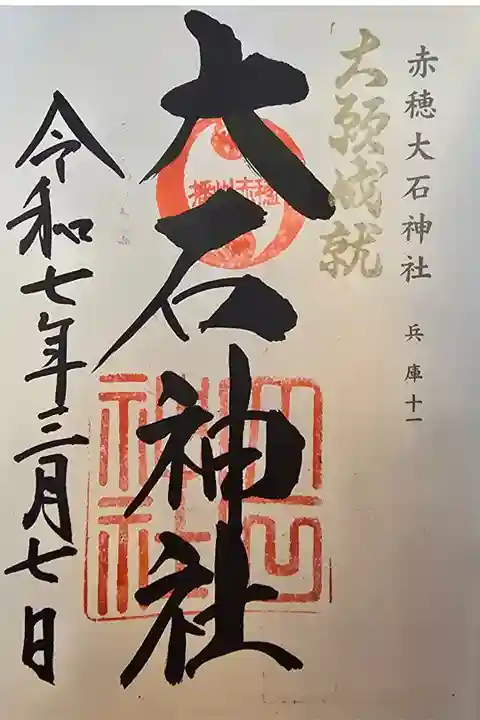 赤穂大石神社 兵庫十一
大願成就
播州赤穂
大石神社
令和七年三月七日